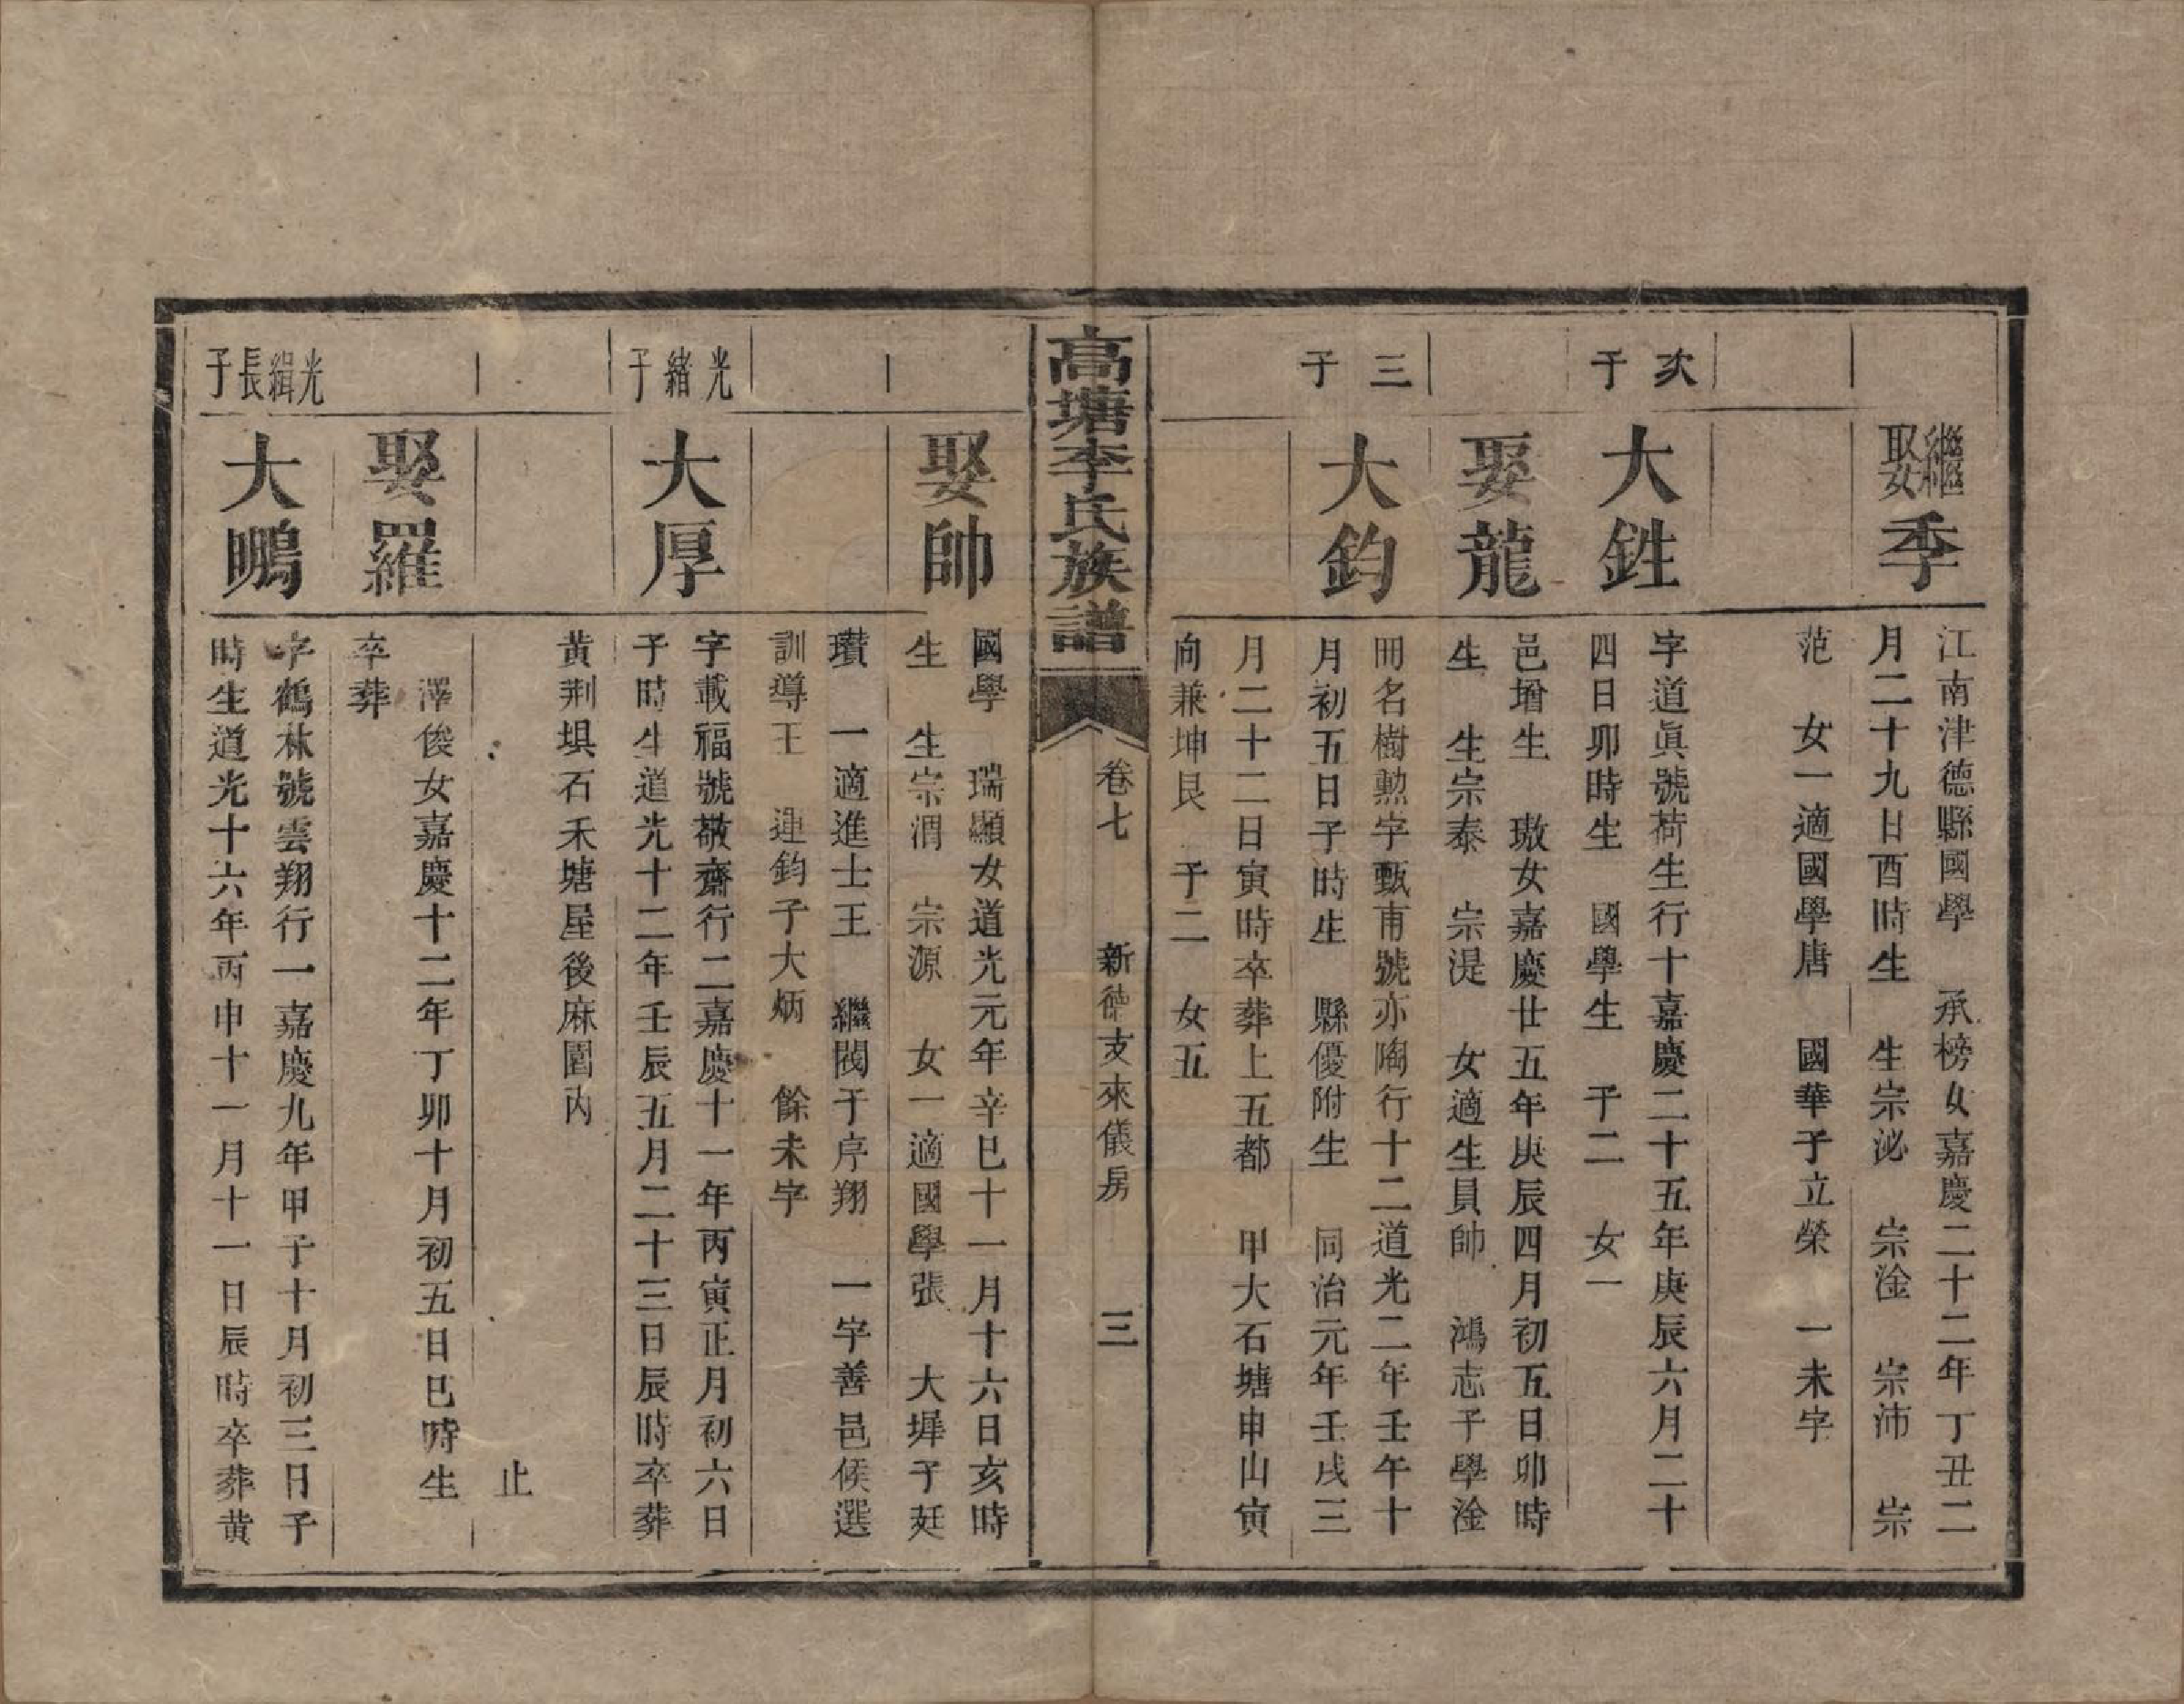 繼娶季
江南津德縣國學　承榜女嘉慶二十二年丁丑二
月二十九日酉時生　生宗泌　宗淦　宗沛　宗
范　女一適國學唐　國華子立榮　一未字
次子
大鉎
字道眞號荷生行十嘉慶二十五年庚辰六月二十
四日卯時生　國學生　子二　女一
娶龍
邑增生　璈女嘉慶廿五年庚辰四月初五日卯時
生　生宗泰　宗湜　女適生員帥　鴻志子學淦
三子
大鈞
冊名樹勲字甄甫號亦陶行十二道光二年壬午十
月初五日子時生　縣優附生　同治元年壬戌三
月二十二日寅時卒葬上五都　甲大石塘申山寅
向兼坤艮　子二　女五
高塘李氏族譜
卷七
新德支來儀房
三
娶帥
國學　瑞顯女道光元年辛巳十一月十六日亥時
生　生宗渭　宗源　女一適國學張　大墀子廷
瓚　一適進士王　繼閥子序翔　一字善邑候選
訓導王　運鈞子大炳　餘未字
光緒子
大厚
字載福號敬齋行二嘉慶十一年丙寅正月初六日
子時生道光十二年壬辰五月二十三日辰時卒葬
黄荆埧石禾塘屋後麻園內
止
娶羅
澤俊女嘉慶十二年丁卯十月初五日巳時生
卒葬
光緝長子
大鵬
字鶴林號雲翔行一嘉慶九年甲子十月初三日子
時生道光十六年丙申十一月十一日辰時卒葬黄